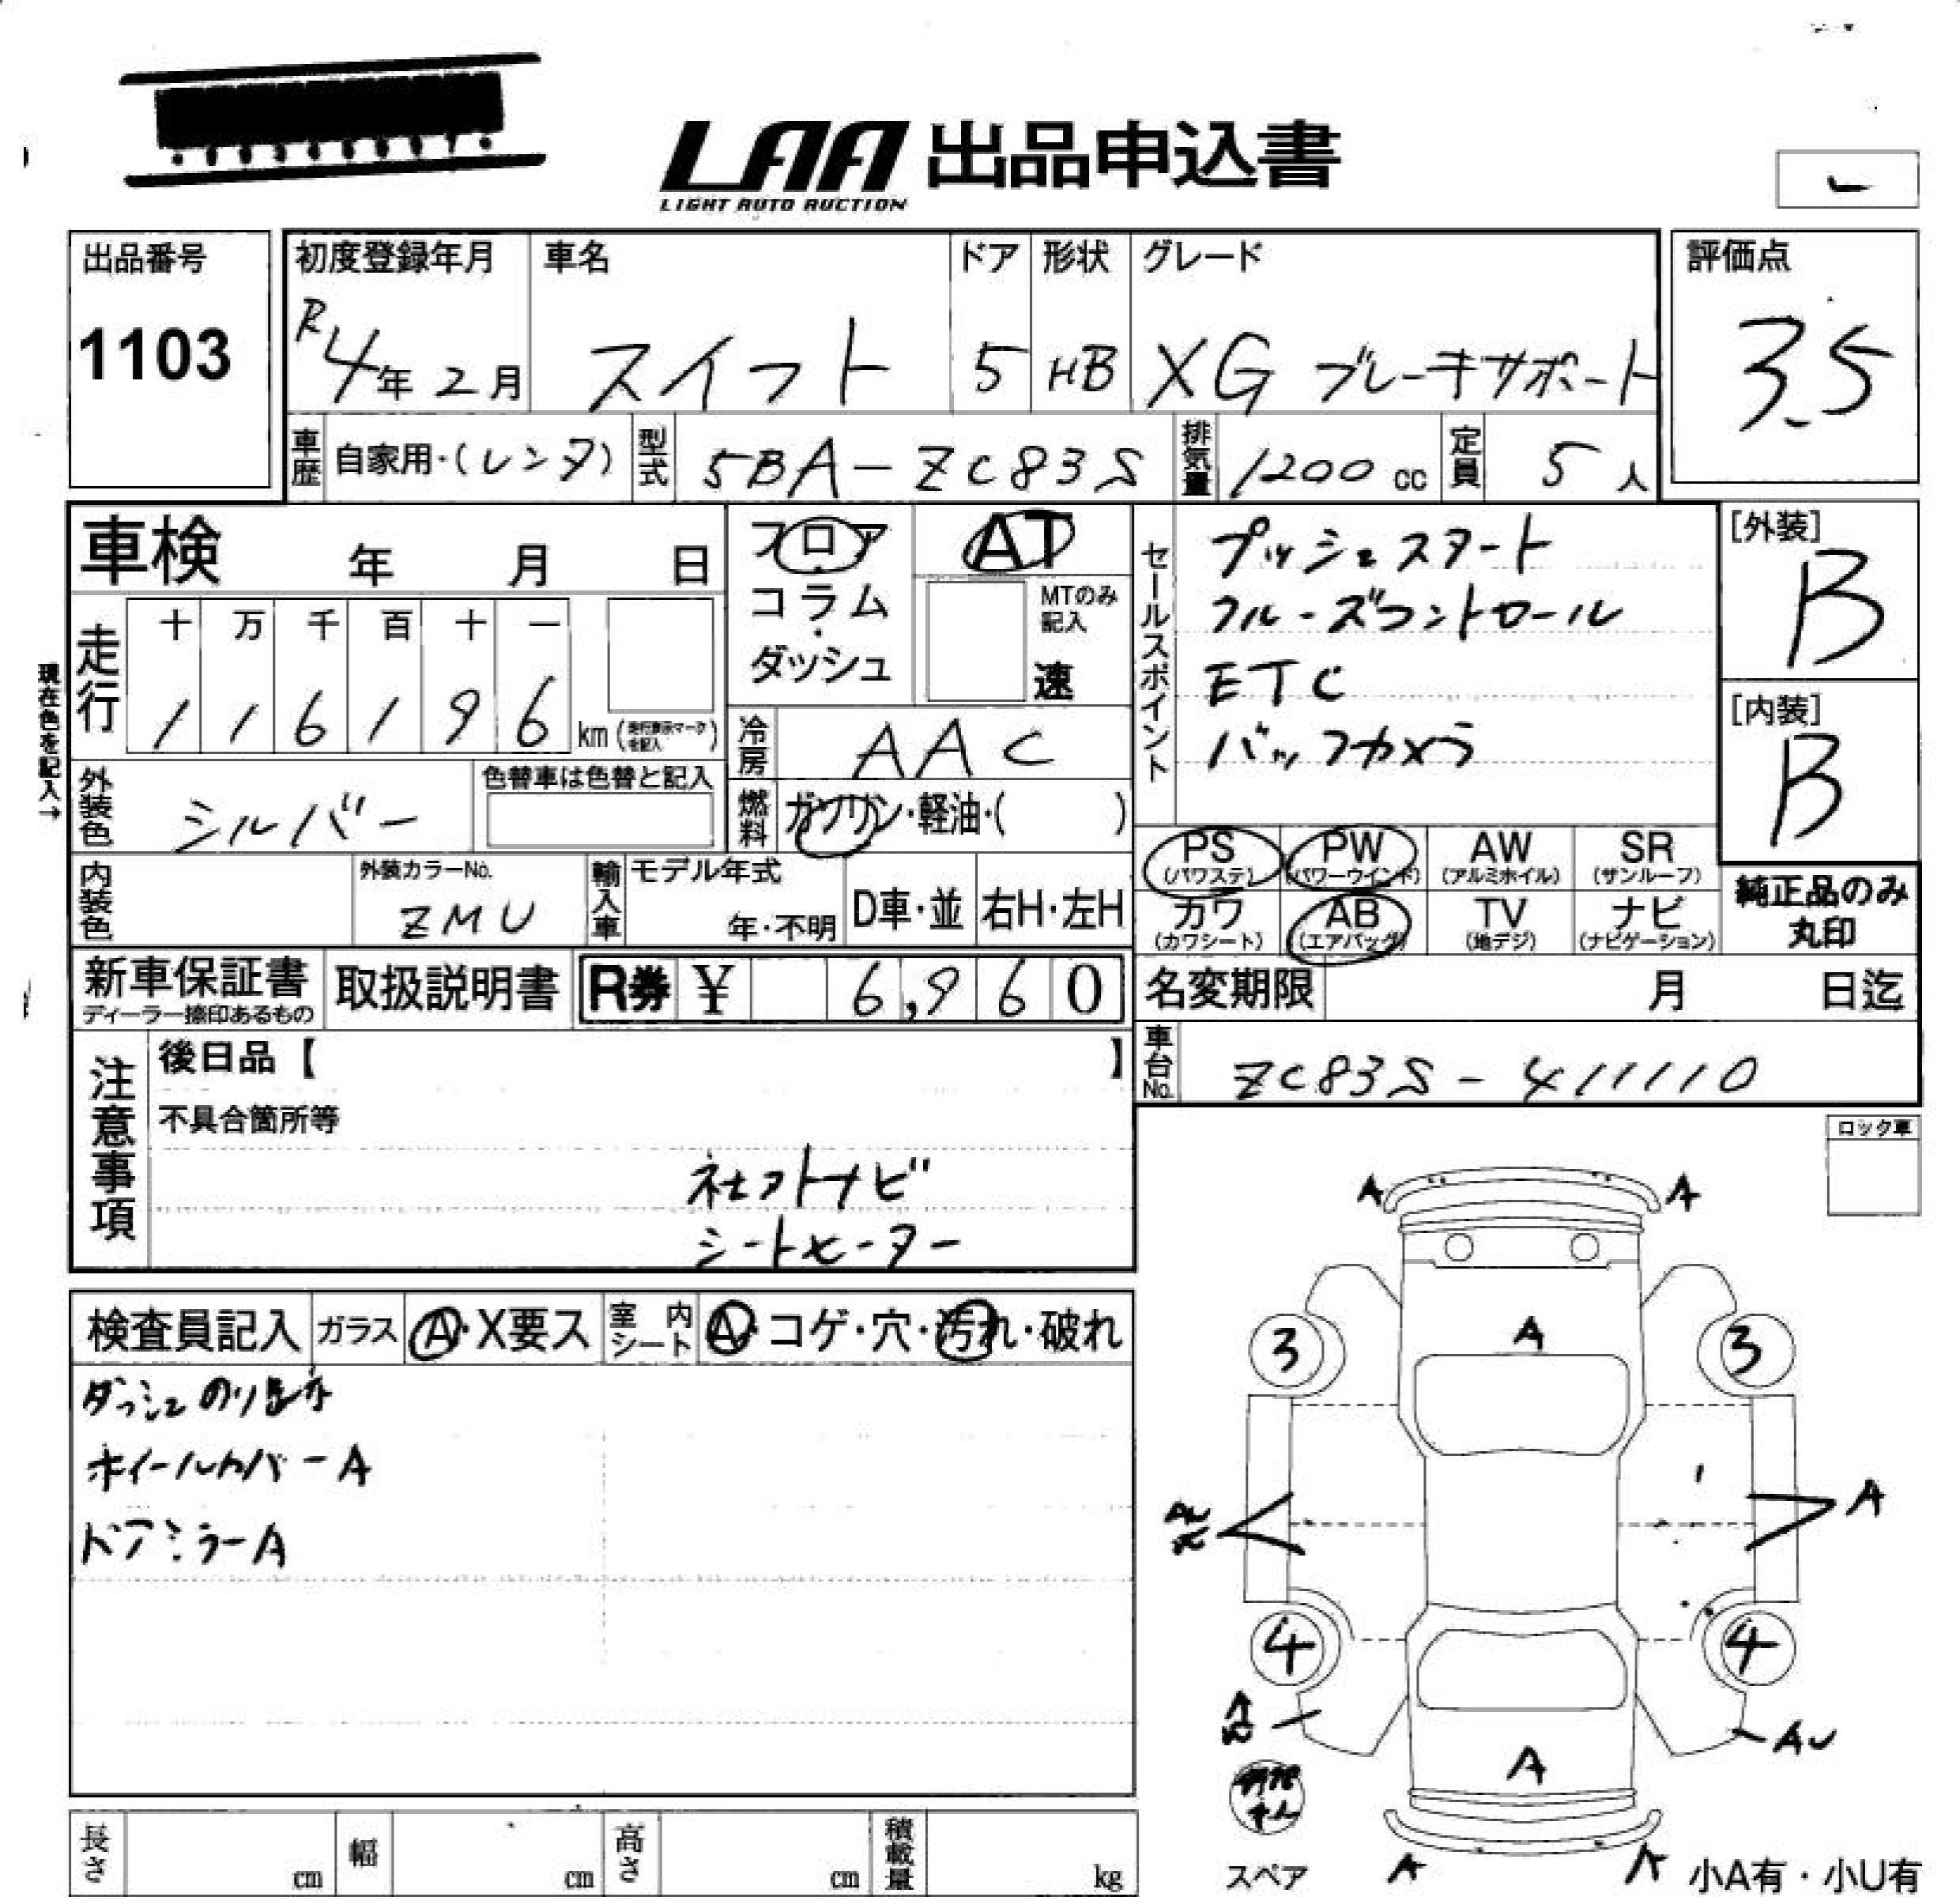 LAA 出品申込書
LIGHT AUTO AUCTION
出品番号
1103
初度登録年月
R4年2月
車名
スイフト
ドア
5
形状
HB
グレード
XG ブレーキサポート
評価点
3.5
車歴 自家用・(レンタ)
型式 5BA-ZC83S
排気量 1200cc
定員 5人
車検 年 月 日
フロア
コラム
・
ダッシュ
AT
MTのみ
記入
速
セールスポイント
プッシュスタート
クルーズコントロール
ETC
バックカメラ
[外装]
B
[内装]
B
現在色を記入→
走行
十 万 千 百 十 一
1 1 6 1 9 6 km
冷房 AAC
外装色 シルバー
色替車は色替と記入
燃料 ガソリン・軽油・( )
PS (パワステ)
PW (パワーウインド)
AW (アルミホイル)
SR (サンルーフ)
カワ (カワシート)
AB (エアバッグ)
TV (地デジ)
ナビ (ナビゲーション)
純正品のみ
丸印
内装色
外装カラーNo.
ZMU
輸入車
モデル年式
年・不明
D車・並
右H・左H
新車保証書
ディーラー捺印あるもの
取扱説明書
R券 ¥ 6,960
名変期限 月 日迄
車台No. ZC83S-411110
注意事項
後日品【 】
不具合箇所等
社外ナビ
シートヒーター
ロック車
検査員記入
ガラス A・X要ス
室内シート A・コゲ・穴・汚れ・破れ
ダッシュのり跡
ホイールカバーA
ドアミラーA
A A
3 A 3
A
4 4
AU
A
スペア
A A
小A有・小U有
長さ cm
幅 cm
高さ cm
積載量 kg